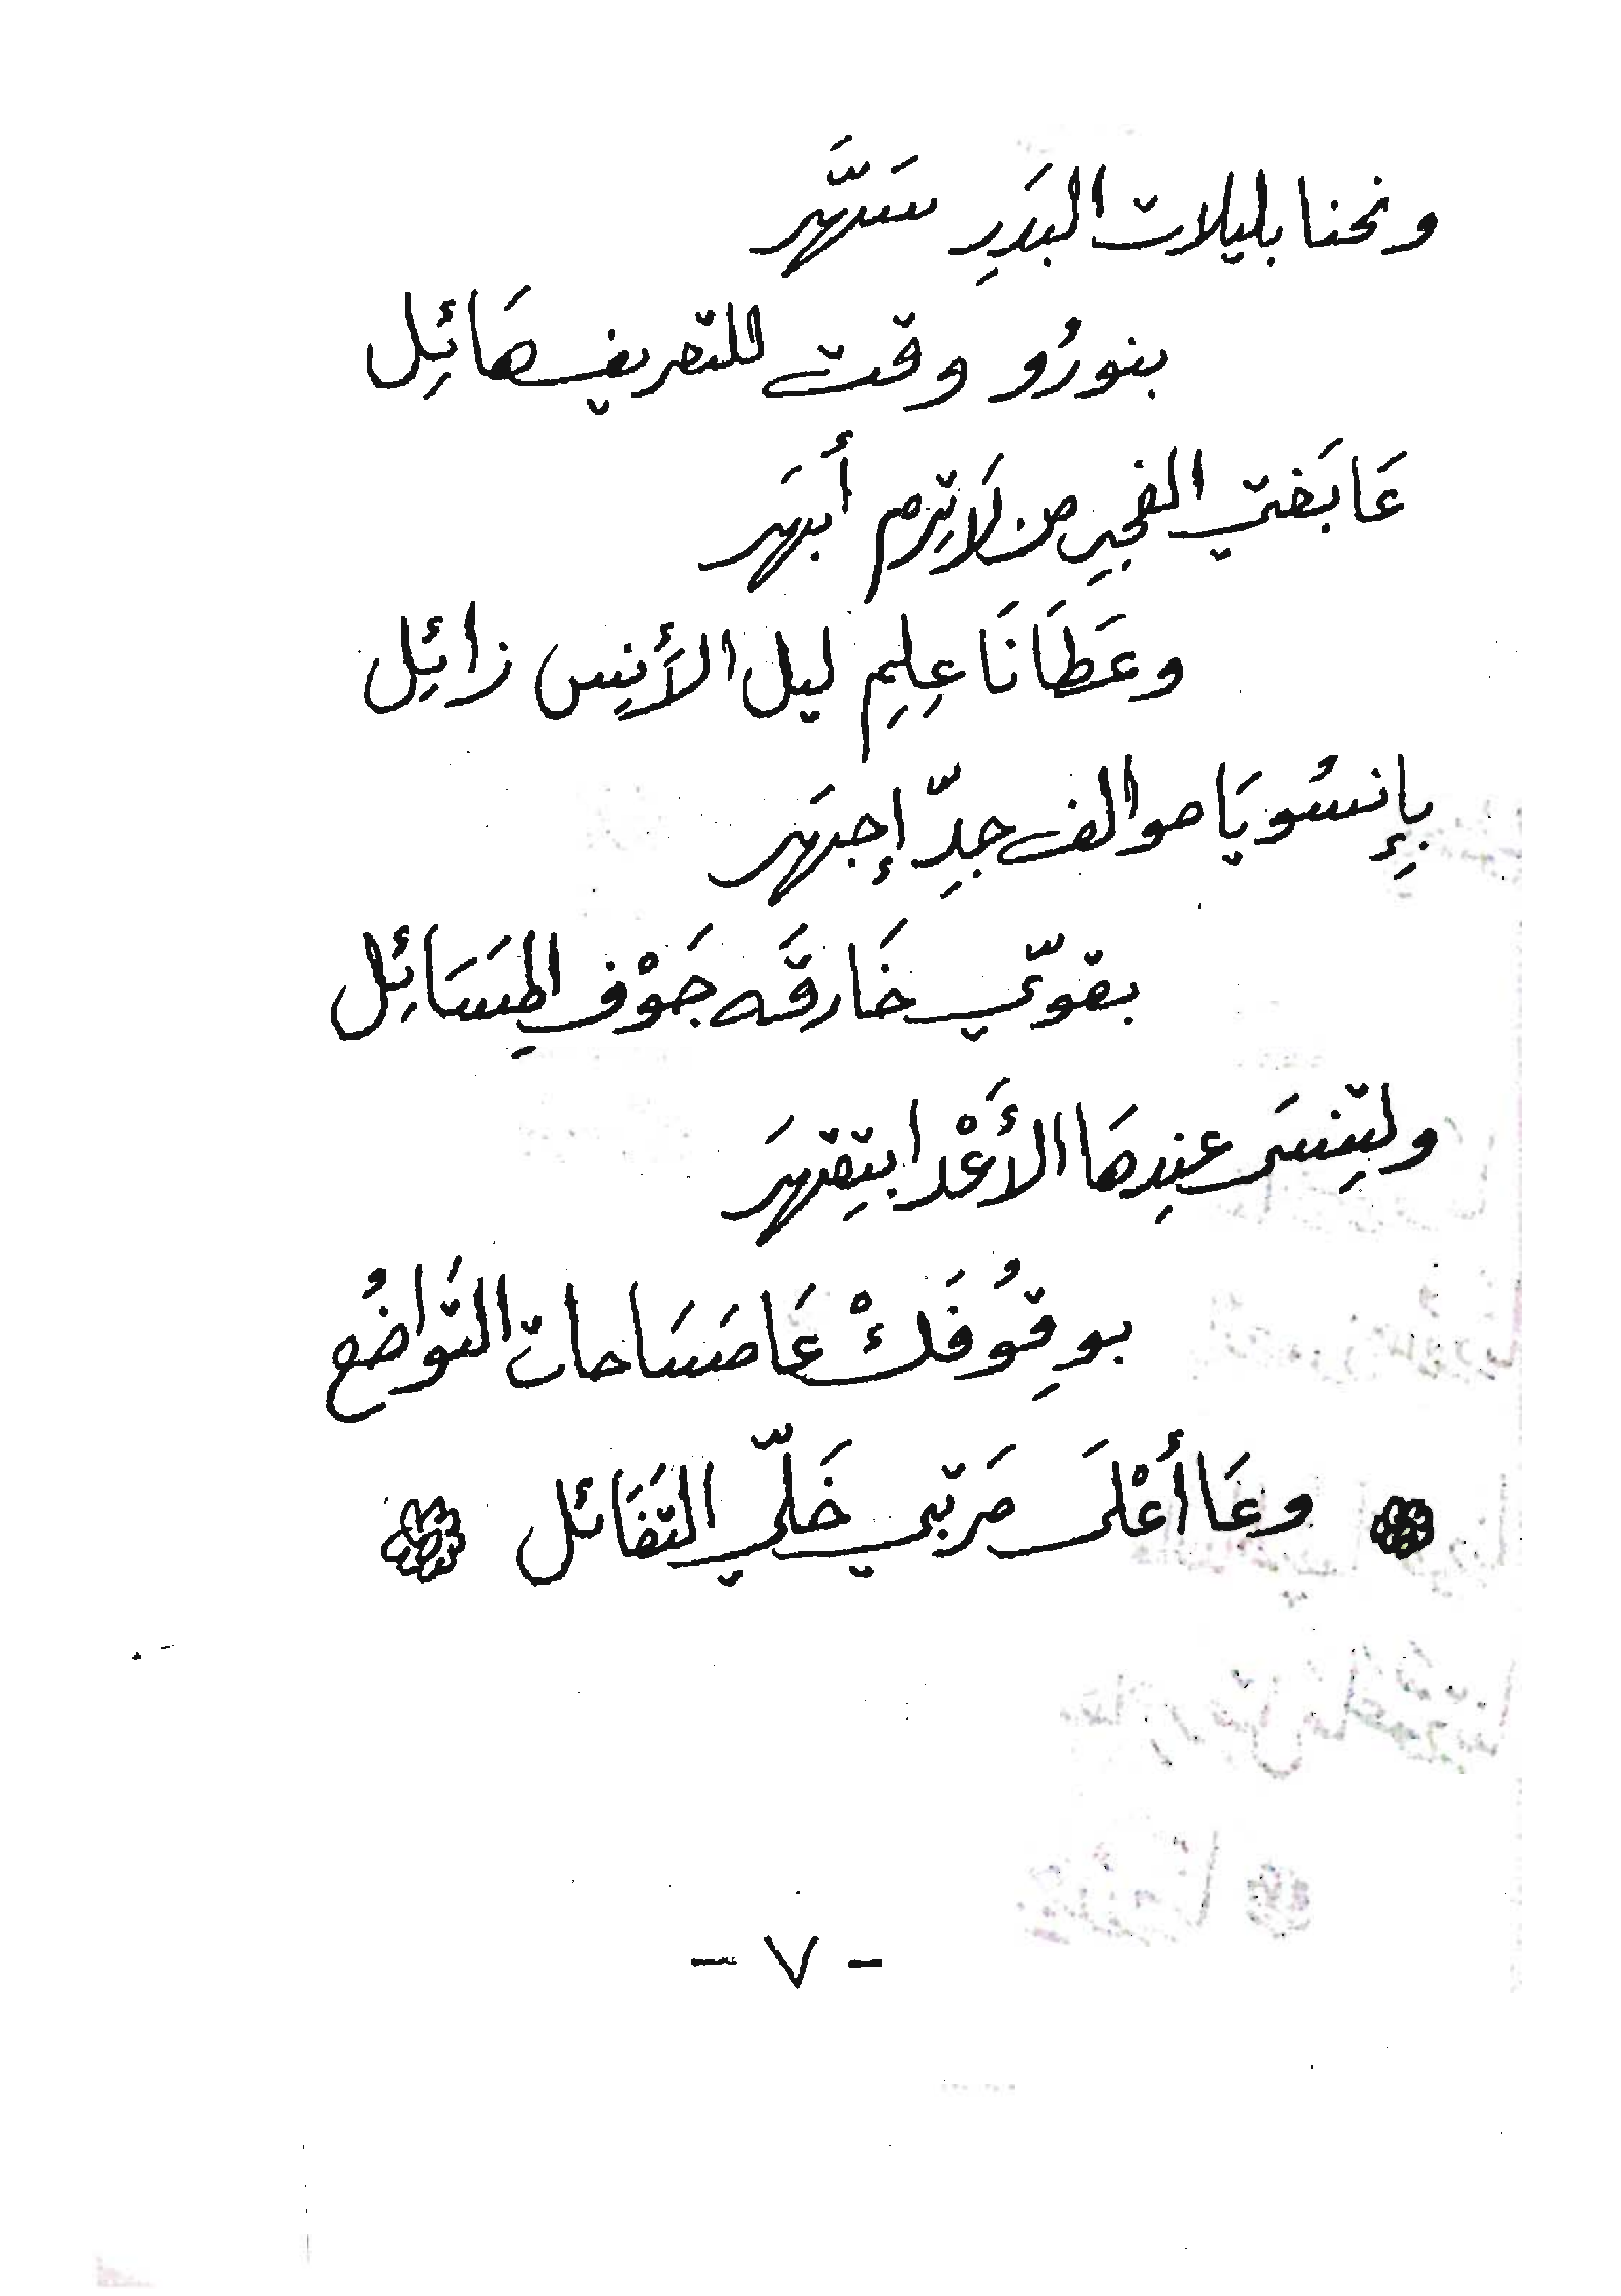 ونحنا بليلات البَدَرِ سَهَّر
بنورُو وقت للتعريف هَائِل
عَا بَغتي الفجرِ من لَا تِرم أبهَر
وعَطَانَا عِلِم ليل الأَنِس زائِل
بإِنسُو يَا موالف جِدّ إجهَر
بقوّي خَارقَه جَوْف المِسَائِل
ولتِنسَر عندِهَا الأَعْدا بتِقهَر
بوقِوُفَكْ عَا مَسَاحات التَواضُع
وعَا أَعْلَى مَرتبي خَلّي التَفَائل
- ٧ -